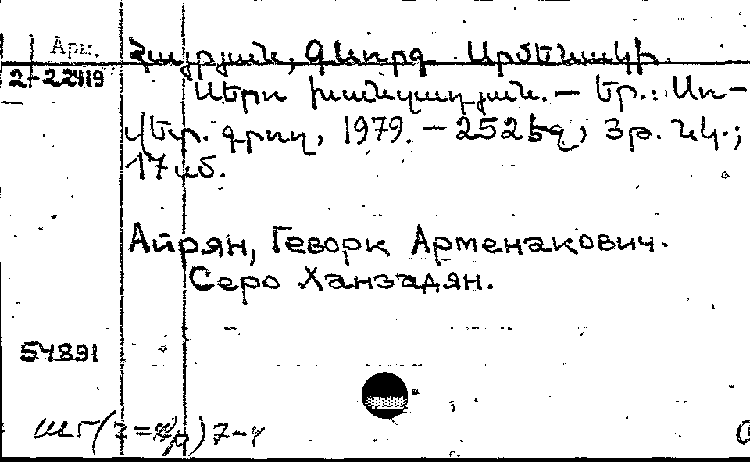 Арм. Հայրյան, Գևորգ Արմենակի.
2-22419
Սերո Խանզադյան. — Եր.: Սո-
վետ. գրող, 1979. — 252 էջ, 3 թ. նկ.;
17 սմ.
Айрян, Геворк Арменакович.
Серо Ханзадян.
54891